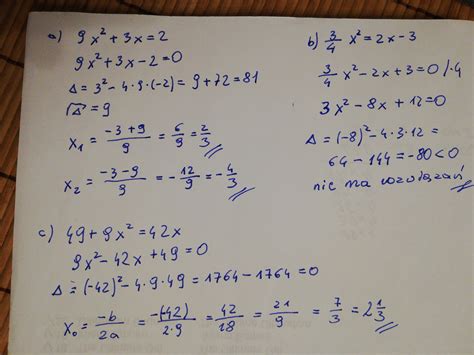 a) 9x² + 3x = 2
9x² + 3x - 2 = 0
Δ = 3² - 4·9·(-2) = 9 + 72 = 81
√Δ = 9
x₁ = (-3+9)/9 = 6/9 = 2/3
x₂ = (-3-9)/9 = -12/9 = -4/3
b) 3/4 x² = 2x - 3
3/4 x² - 2x + 3 = 0 /·4
3x² - 8x + 12 = 0
Δ = (-8)² - 4·3·12 =
64 - 144 = -80 < 0
nie ma rozwiązań
c) 49 + 9x² = 42x
9x² - 42x + 49 = 0
Δ = (-42)² - 4·9·49 = 1764 - 1764 = 0
x₀ = -b/2a = -(-42)/2·9 = 42/18 = 21/9 = 7/3 = 2 1/3